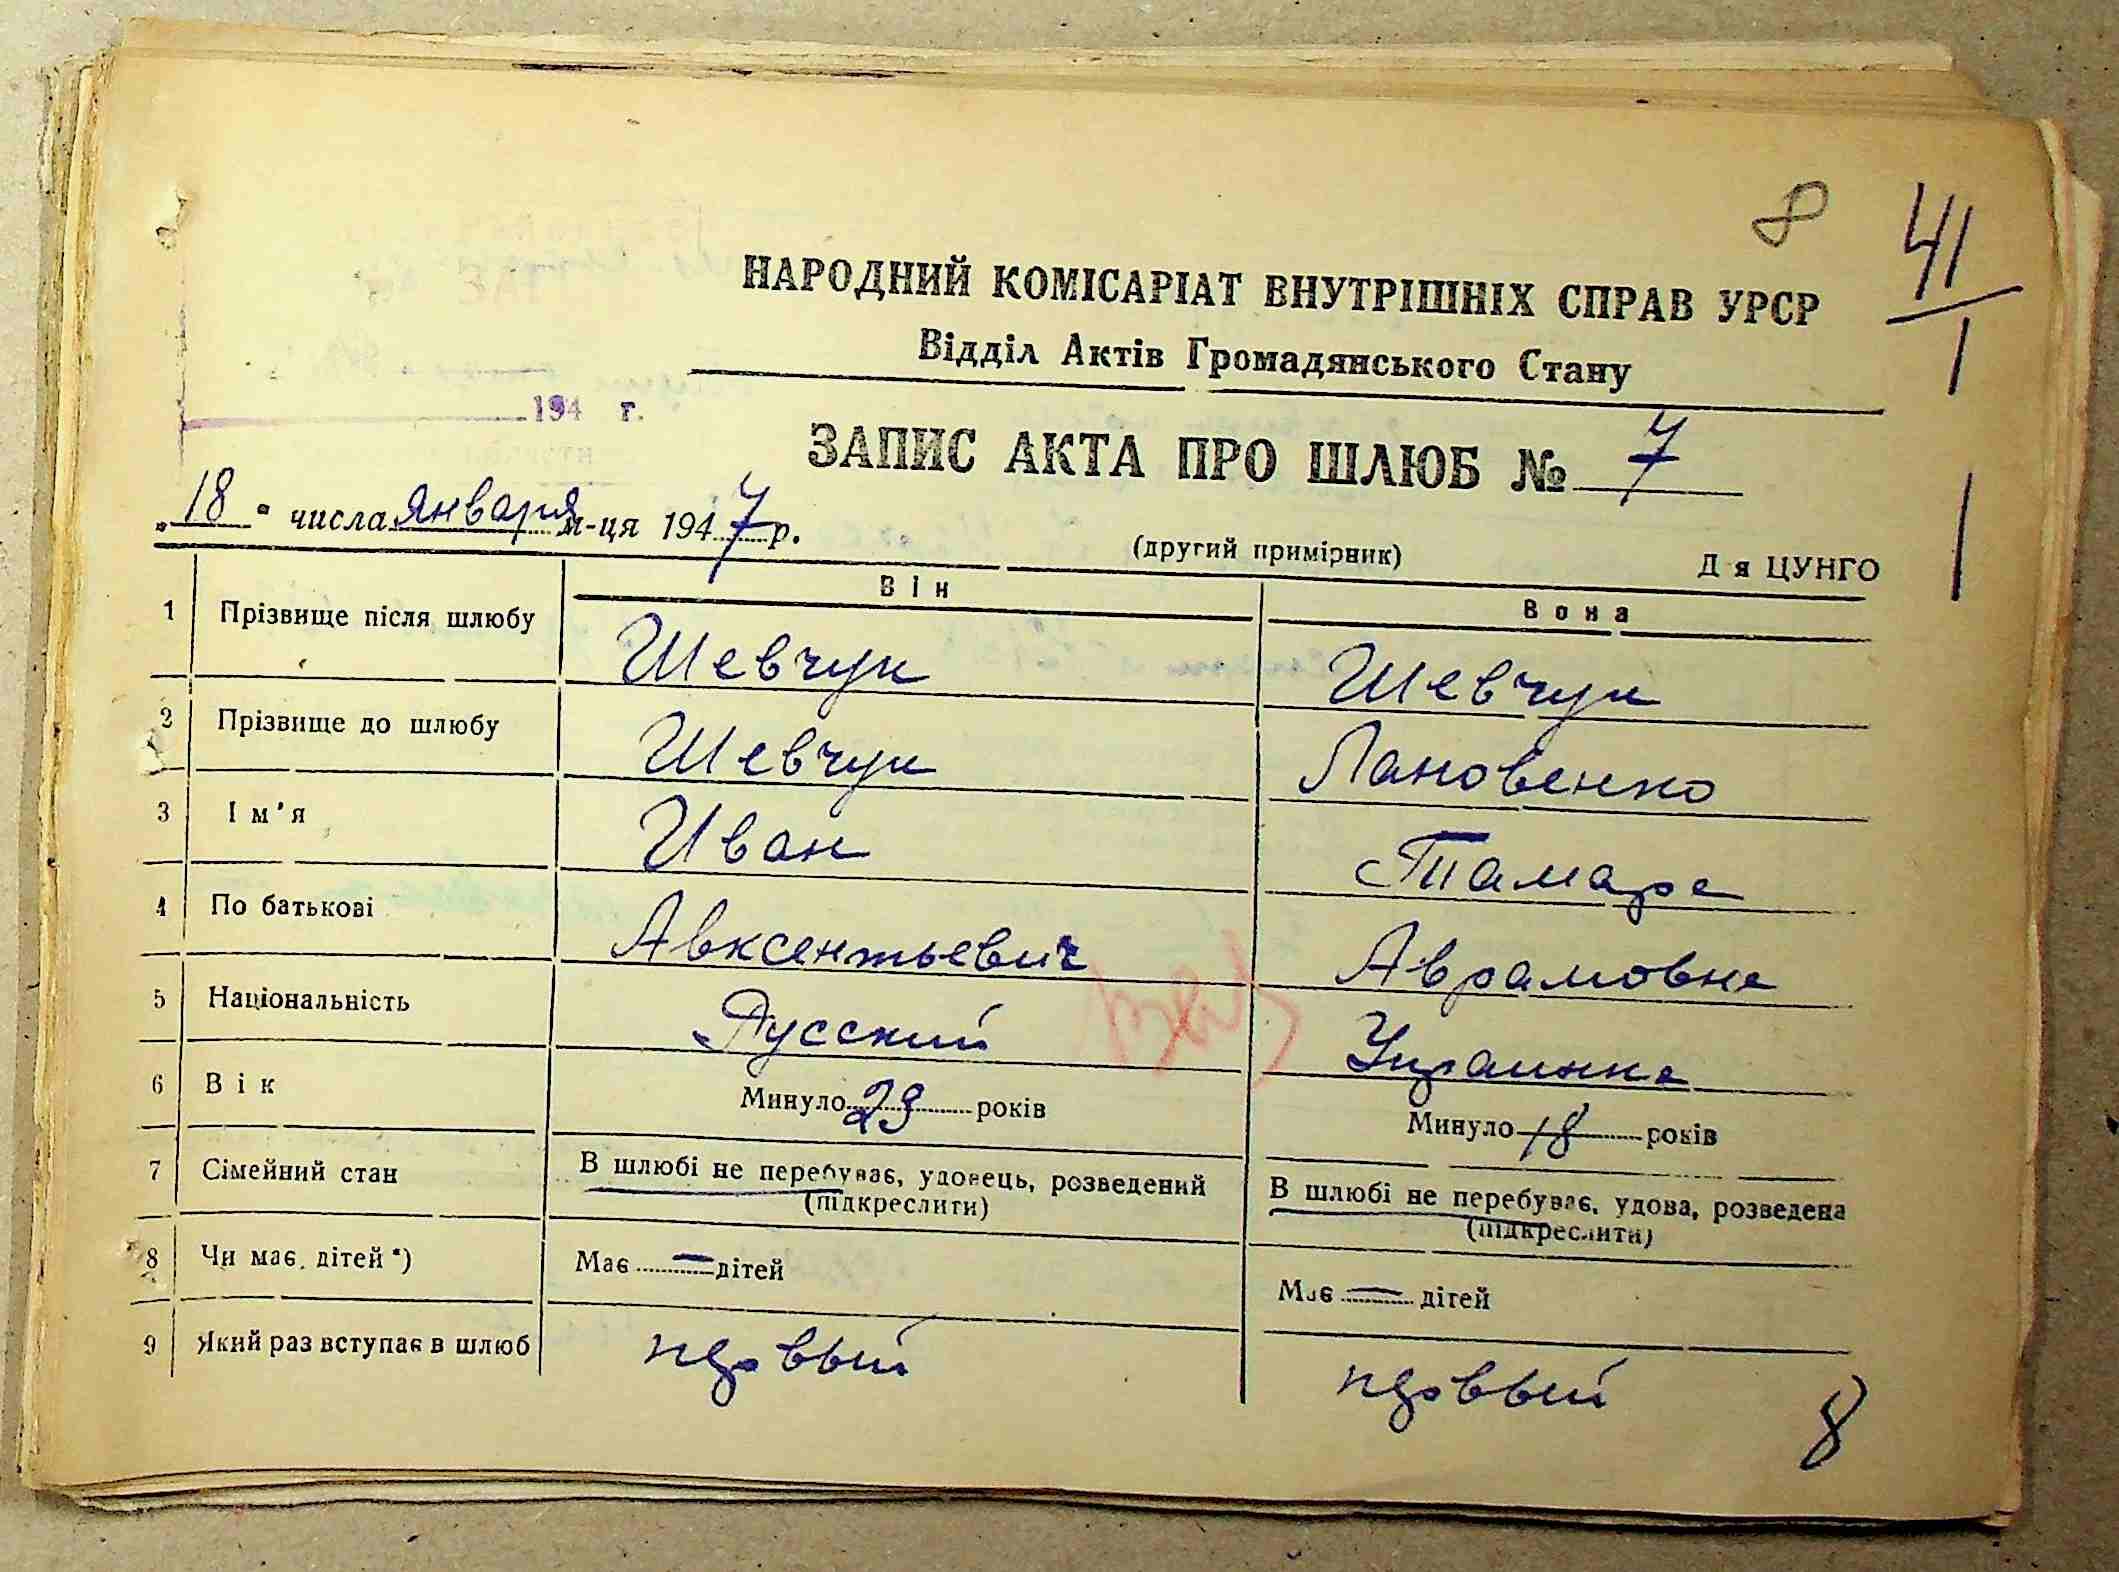 8
41
1
НАРОДНИЙ КОМІСАРІАТ ВНУТРІШНІХ СПРАВ УРСР
Відділ Актів Громадянського Стану
194 г.
ЗАПИС АКТА ПРО ШЛЮБ № 7
„18" числа января м-ця 1947 р.
(другий примірник) Д я ЦУНГО
Він Вона
1 Прізвище після шлюбу Шевчук Шевчук
2 Прізвище до шлюбу Шевчук Лановенко
3 Ім'я Иван Тамара
4 По батькові Авксентьевич Аврамовна
5 Національність Русский Украинка
6 Вік Минуло 23 років Минуло 18 років
7 Сімейний стан В шлюбі не перебуває, удовець, розведений (підкреслити) В шлюбі не перебуває, удова, розведена (підкреслити)
8 Чи має дітей *) Має — дітей Має — дітей
9 Який раз вступає в шлюб первый первый
8